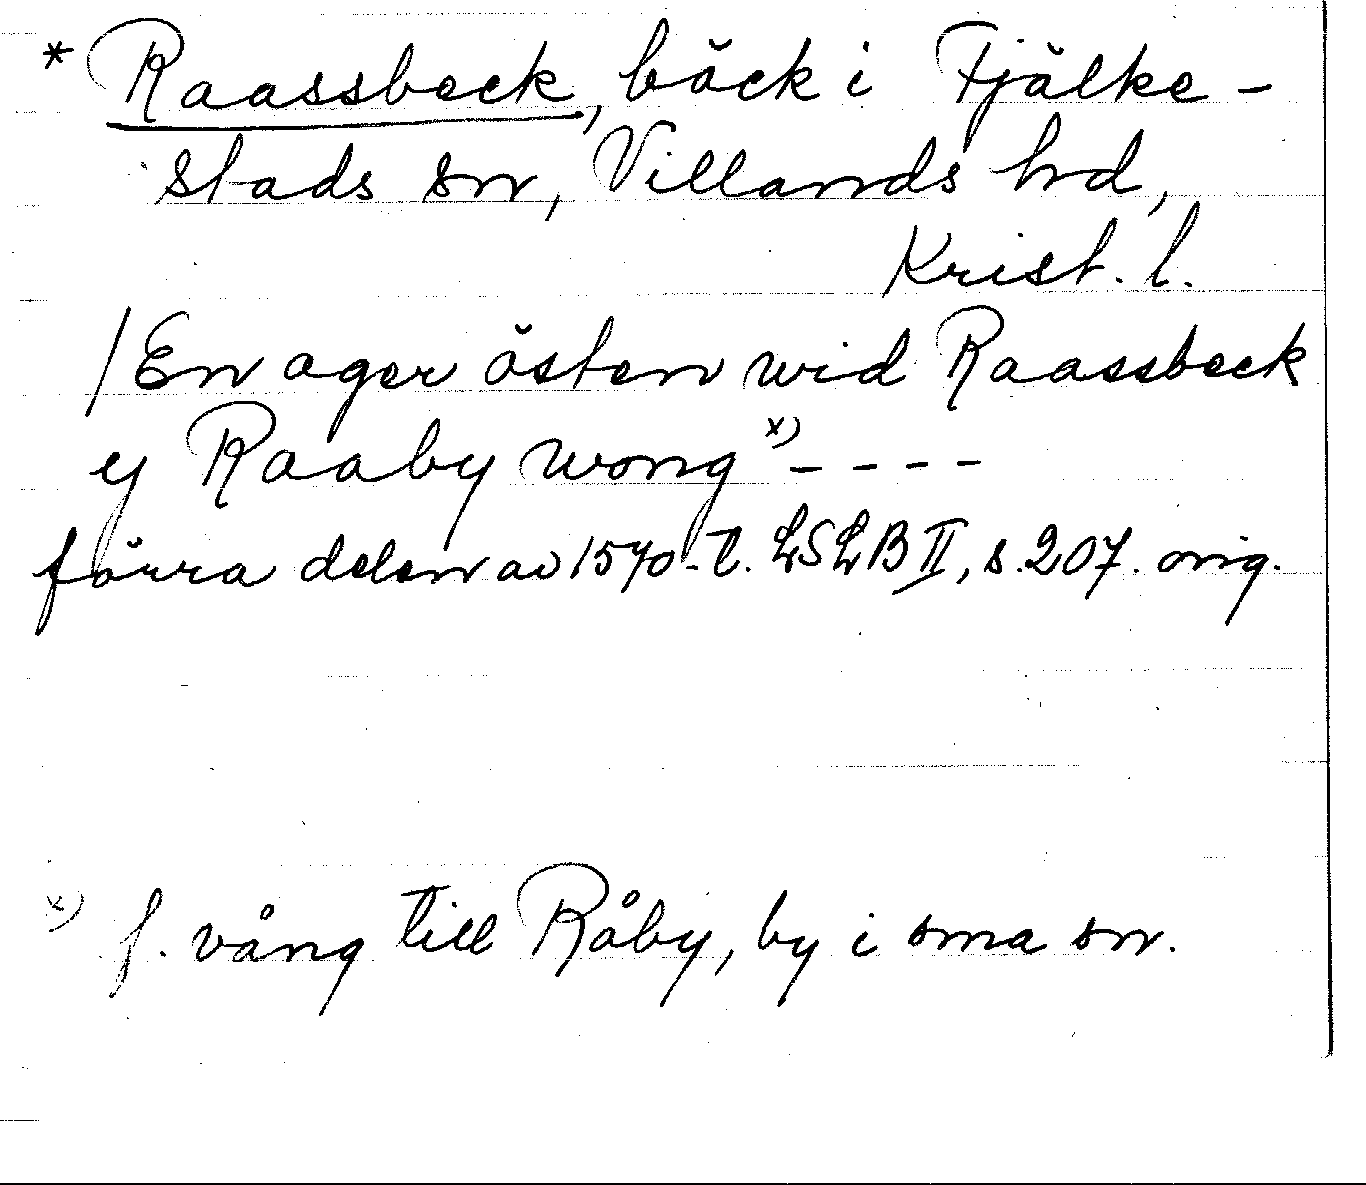 * Raassbeck, bäck i Fjälke-
stads sn, Villands hd,
Krist. l.
/En ager östen wid Raassbeck
ey Raaby wong x) - - - -
förra delen av 1570-t. LSLB II, s. 207. orig.
x) f. vång till Råby, by i sma sn.